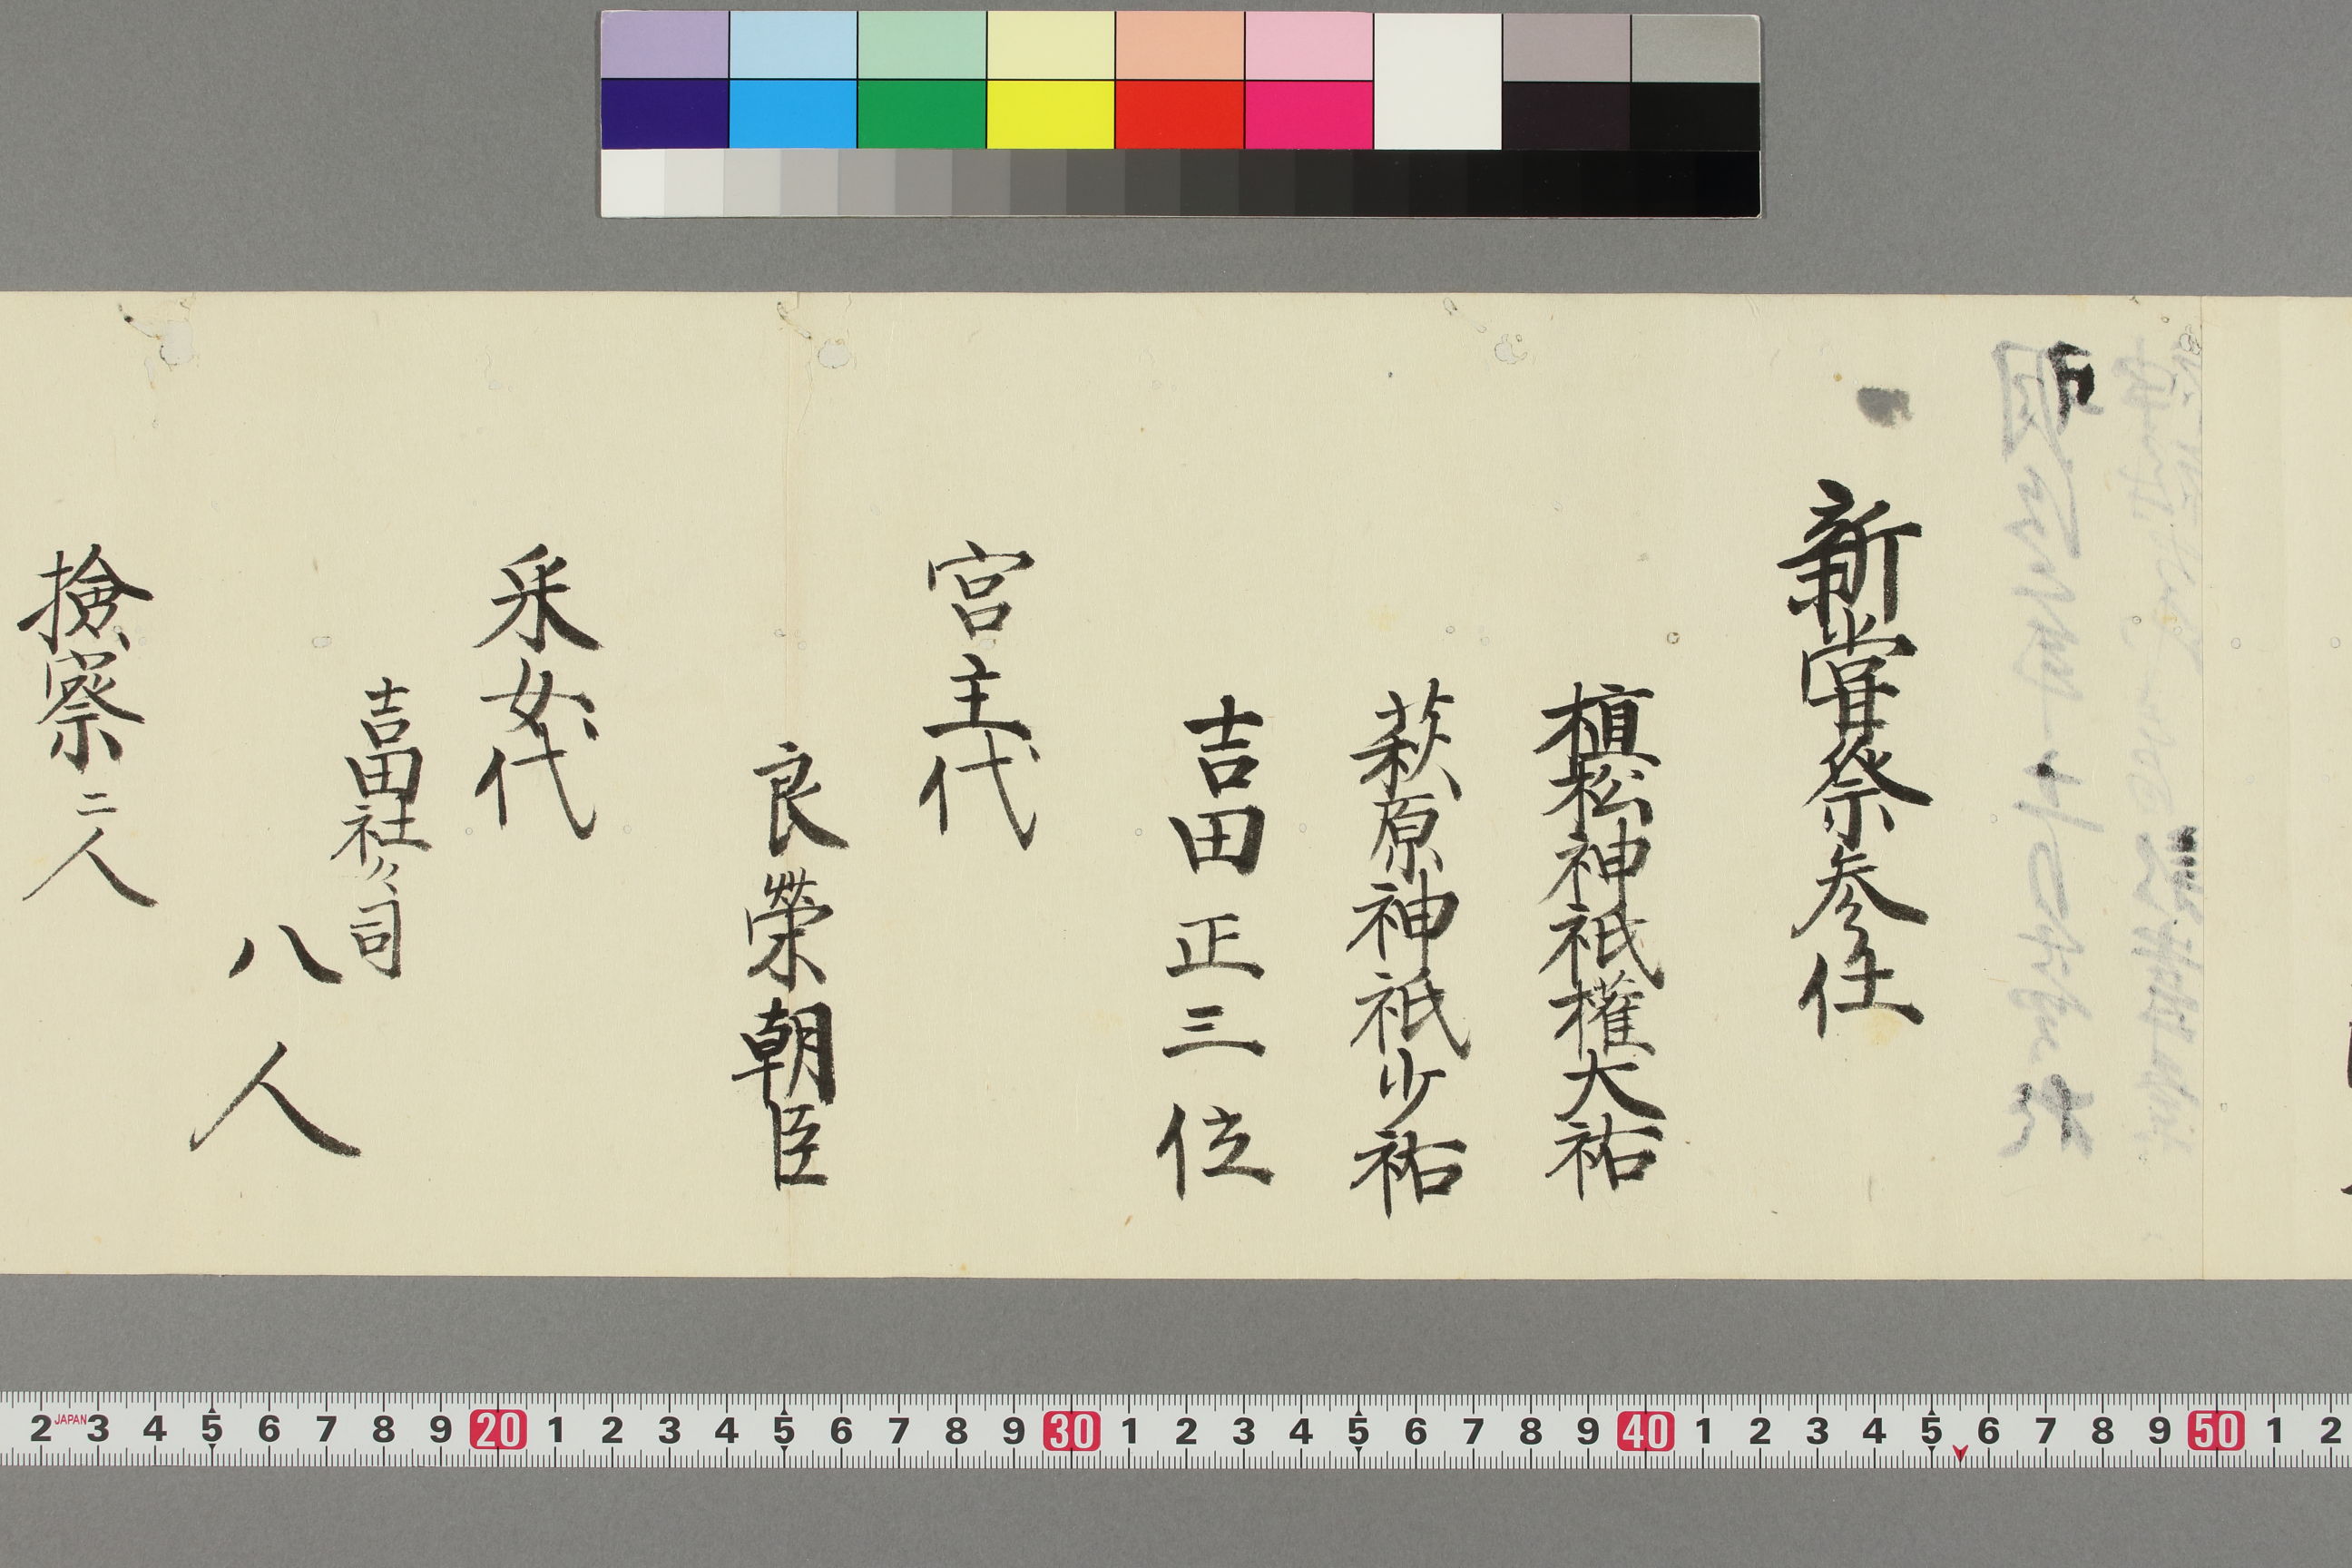 新嘗祭参仕
植松神祇權大祐
萩原神祇少祐
吉田正三位
宮主代
良榮朝臣
采女代
吉田社々司
八人
撿察二人
2 JAPAN 3 4 5 6 7 8 9 20 1 2 3 4 5 6 7 8 9 30 1 2 3 4 5 6 7 8 9 40 1 2 3 4 5 6 7 8 9 50 1 2